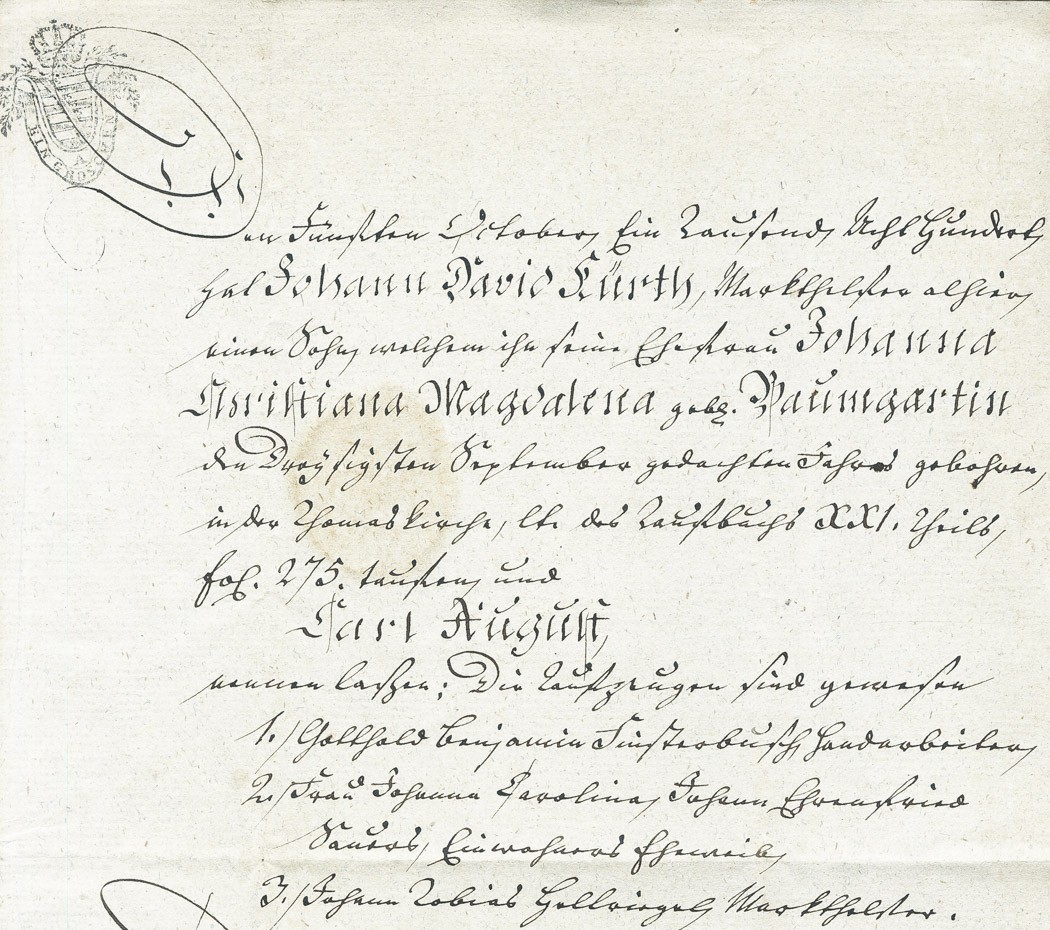 EIN GROSCHEN
Am Fünften October, Ein Tausend, Acht Hundert,
hat Johann David Kürth, Markthelfer alhier,
einen Sohn, welchem ihn seine Ehefrau Johanna
Christiana Magdalena geb. Baumgartin
den Dreÿsigsten September gedachten Jahres gebohren,
in der Thomaskirche, lt. des Taufbuchs XXI. Theils,
fol. 275. taufen, und
Carl August,
nennen laßen; Die Taufzeugen sind gewesen
1./ Gotthold Benjamin Finsterbusch, Handarbeiter,
2./ Frau Johanna Carolina, Johann Ehrenfried
Sauers, Einwohners Eheweib,
3./ Johann Tobias Hellriegel, Markthelfer.